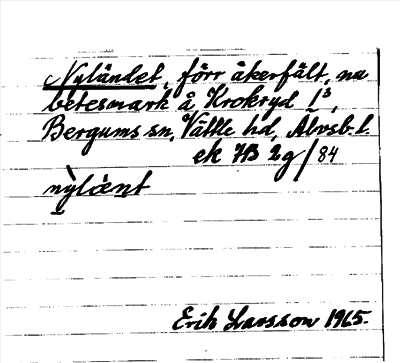 Nylandet, förr åkerfält, nu
betesmark å Krokryd 1³,
Bergums sn, Vättle hd, Älvsb. l.
ek 7B 2g/84
Erik Larsson 1965.